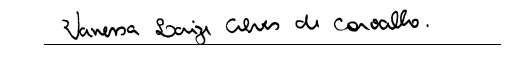 Vanessa Laize Alves de Carvalho.